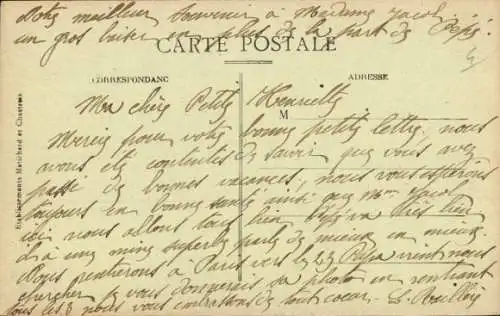 Notre meilleur souvenir à Madame Jacob
un gros baiser en plus de la part de Pépé.
CARTE POSTALE
CORRESPONDANC
ADRESSE
M
Etablissements Matichard et Chastenne
Ma chère Petite Henriette
Merci pour votre bonne petite lettre, nous
avons été contentes de savoir que vous avez
passé de bonnes vacances, nous vous espérons
toujours en bonne santé ainsi que Mme Jacob
ici nous allons tous bien Pépé va très bien
il a une mine superbe parle de mieux en mieux.
Nous rentrerons à Paris vers le 23 vient nous
chercher je vous donnerais sa photo en rentrant
tous les 3 nous vous embrassons de tout coeur.